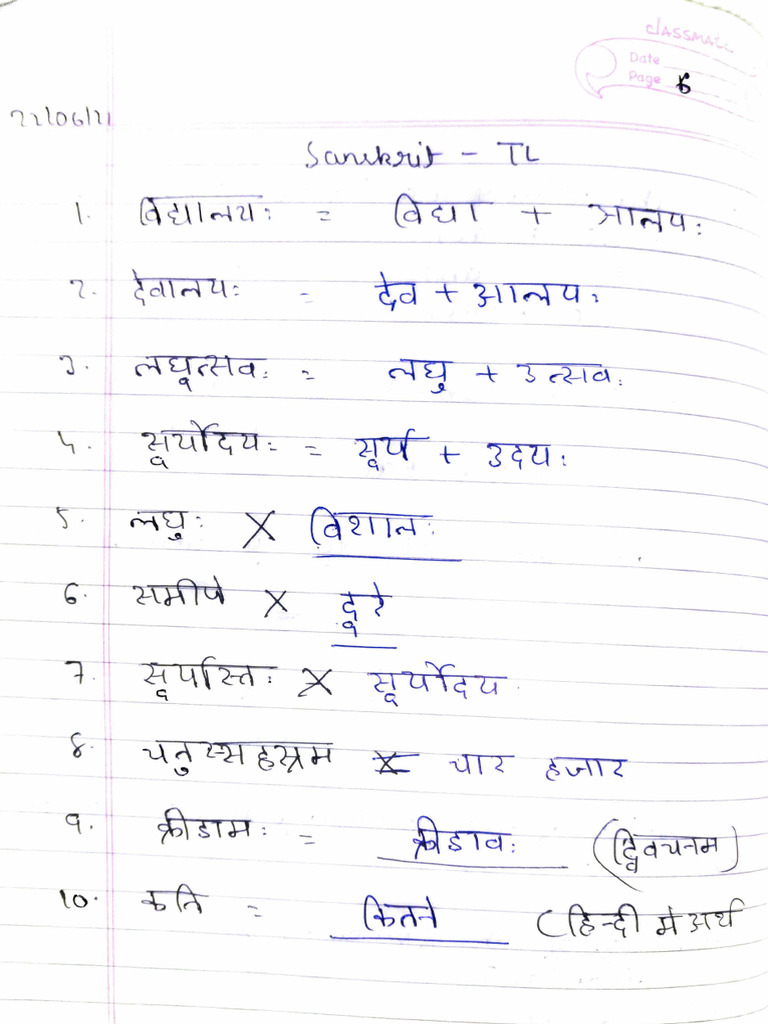 classmate
Date
Page 6
22/06/21
Sanskrit - TL
1. विद्यालयः = विद्या + आलयः
2. देवालयः = देव + आलयः
3. लघूत्सवः = लघु + उत्सवः
4. सूर्योदयः = सूर्य + उदयः
5. लघुः X विशालः
6. समीपे X दूरे
7. सूर्यास्तः X सूर्योदय
8. चतुस्सहस्रम = चार हजार
9. क्रीडामः = क्रीडावः (द्विवचनम)
10. कति = कितने (हिन्दी मे अर्थ